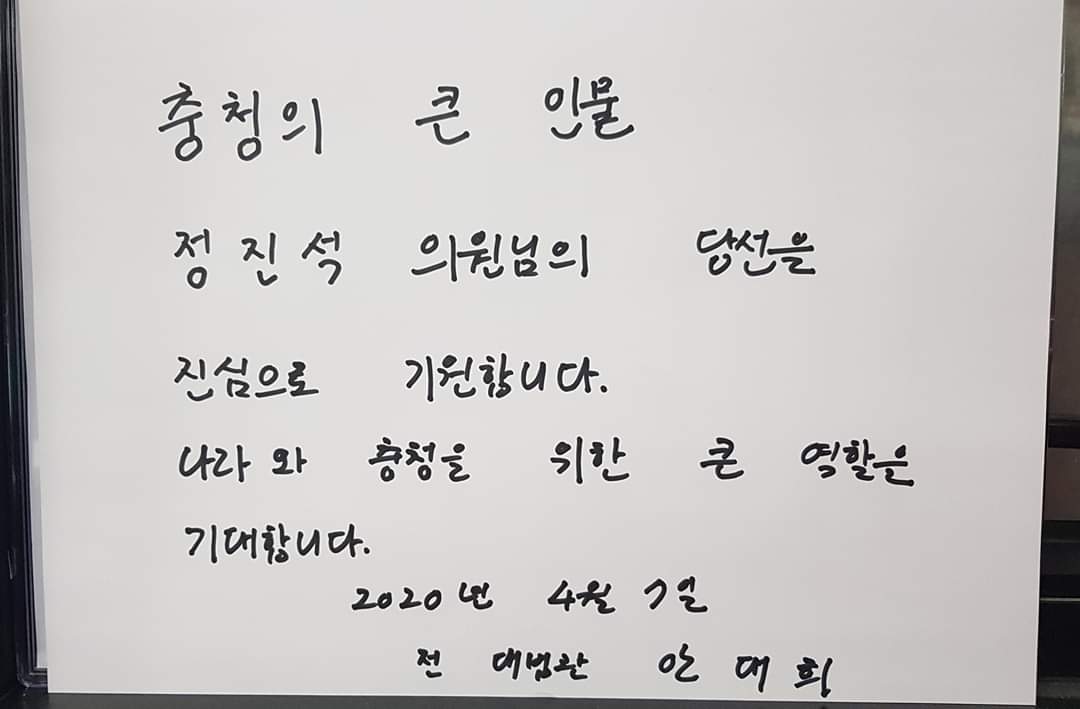 충청의 큰 인물
정진석 의원님의 당선을
진심으로 기원합니다.
나라와 충청을 위한 큰 역할을
기대합니다.
2020년 4월 7일
전 대법관 안대희